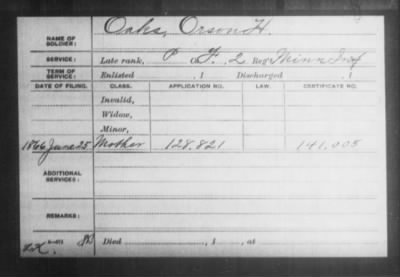 NAME OF SOLDIER: Oaks, Orson H.
SERVICE: Late rank, P Co. F, 2 Reg't Minn Inf
TERM OF SERVICE: Enlisted , 1 Discharged , 1
DATE OF FILING. CLASS. APPLICATION NO. LAW. CERTIFICATE NO.
Invalid,
Widow,
Minor,
1866 June 25 Mother 128.821 141.005
ADDITIONAL SERVICES:
REMARKS:
Died , 1 , at